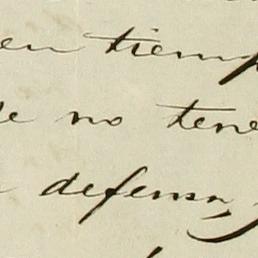 en tiemp
de no tene
a defensa,